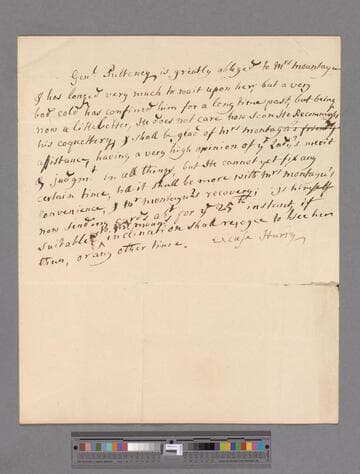 Genl Pulteney is greatly obleged to Mrs Montague
& has longed very much to wait upon her, but a very
bad cold has confined him for a long time past, but being
now a little better, He does not care how soon He Recommences
his coquettery, & shall be glad of Mrs montagu's friendly
assistance having a very high opinion of ye Lady's merit
& Judgmt in all things, but He cannot yet fix any
certain time, till it shall be more with Mrs montagu's
convenience, & Mr montagu's recovery; is himself
now sending cards abt for ye 25th instant, if
suitable to Mrs moug's
inclination shall rejoyce to see her
then, or any other time.
Excuse Hurry